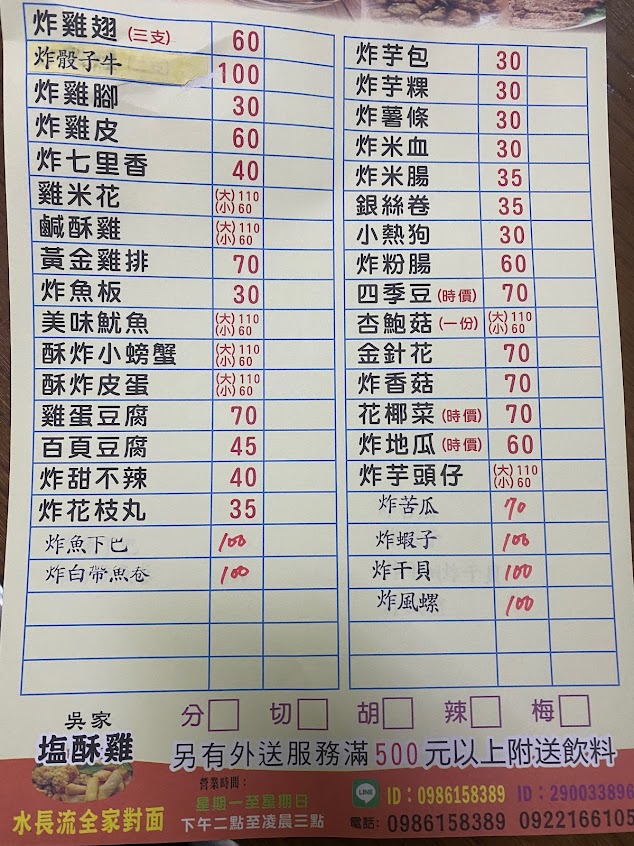 炸雞翅(三支) 60
炸骰子牛 100
炸雞腳 30
炸雞皮 60
炸七里香 40
雞米花 (大)110 (小)60
鹹酥雞 (大)110 (小)60
黃金雞排 70
炸魚板 30
美味魷魚 (大)110 (小)60
酥炸小螃蟹 (大)110 (小)60
酥炸皮蛋 (大)110 (小)60
雞蛋豆腐 70
百頁豆腐 45
炸甜不辣 40
炸花枝丸 35
炸魚下巴 100
炸白帶魚卷 100
炸芋包 30
炸芋粿 30
炸薯條 30
炸米血 30
炸米腸 35
銀絲卷 35
小熱狗 30
炸粉腸 60
四季豆(時價) 70
杏鮑菇(一份) (大)110 (小)60
金針花 70
炸香菇 70
花椰菜(時價) 70
炸地瓜(時價) 60
炸芋頭仔 (大)110 (小)60
炸苦瓜 70
炸蝦子 100
炸干貝 100
炸風螺 100
分□ 切□ 胡□ 辣□ 梅□
吳家
塩酥雞
另有外送服務滿500元以上附送飲料
水長流全家對面
營業時間：
星期一至星期日
下午二點至凌晨三點
LINE ID：0986158389 ID：290033896
電話：0986158389 0922166105